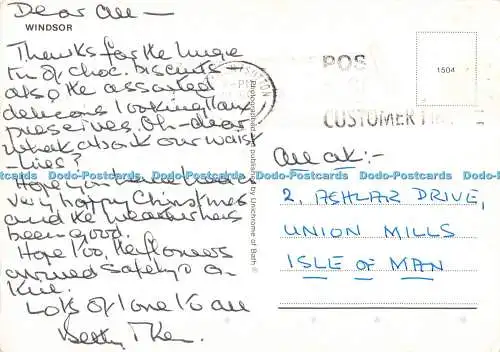 Dear all —
WINDSOR
Thanks for the huge
tin of choc. biscuits —
also, the assorted
delicious looking
preserves. Oh-dear
what about our waist
-lines?
Hope you have had a
very happy Christmas
and the weather has
been good.
Hope too, the flowers
arrived safely & O.
Lots of love to all
Betty & Ken
Photographed and published by Unichrome of Bath ®
POS
CUSTOMER
1504
all at:-
2, ASHLAR DRIVE,
UNION MILLS
ISLE OF MAN
Dodo-Postcards Dodo-Postcards Dodo-Postcards Dodo-Postcards Dodo-Postcards Dodo-Postcards